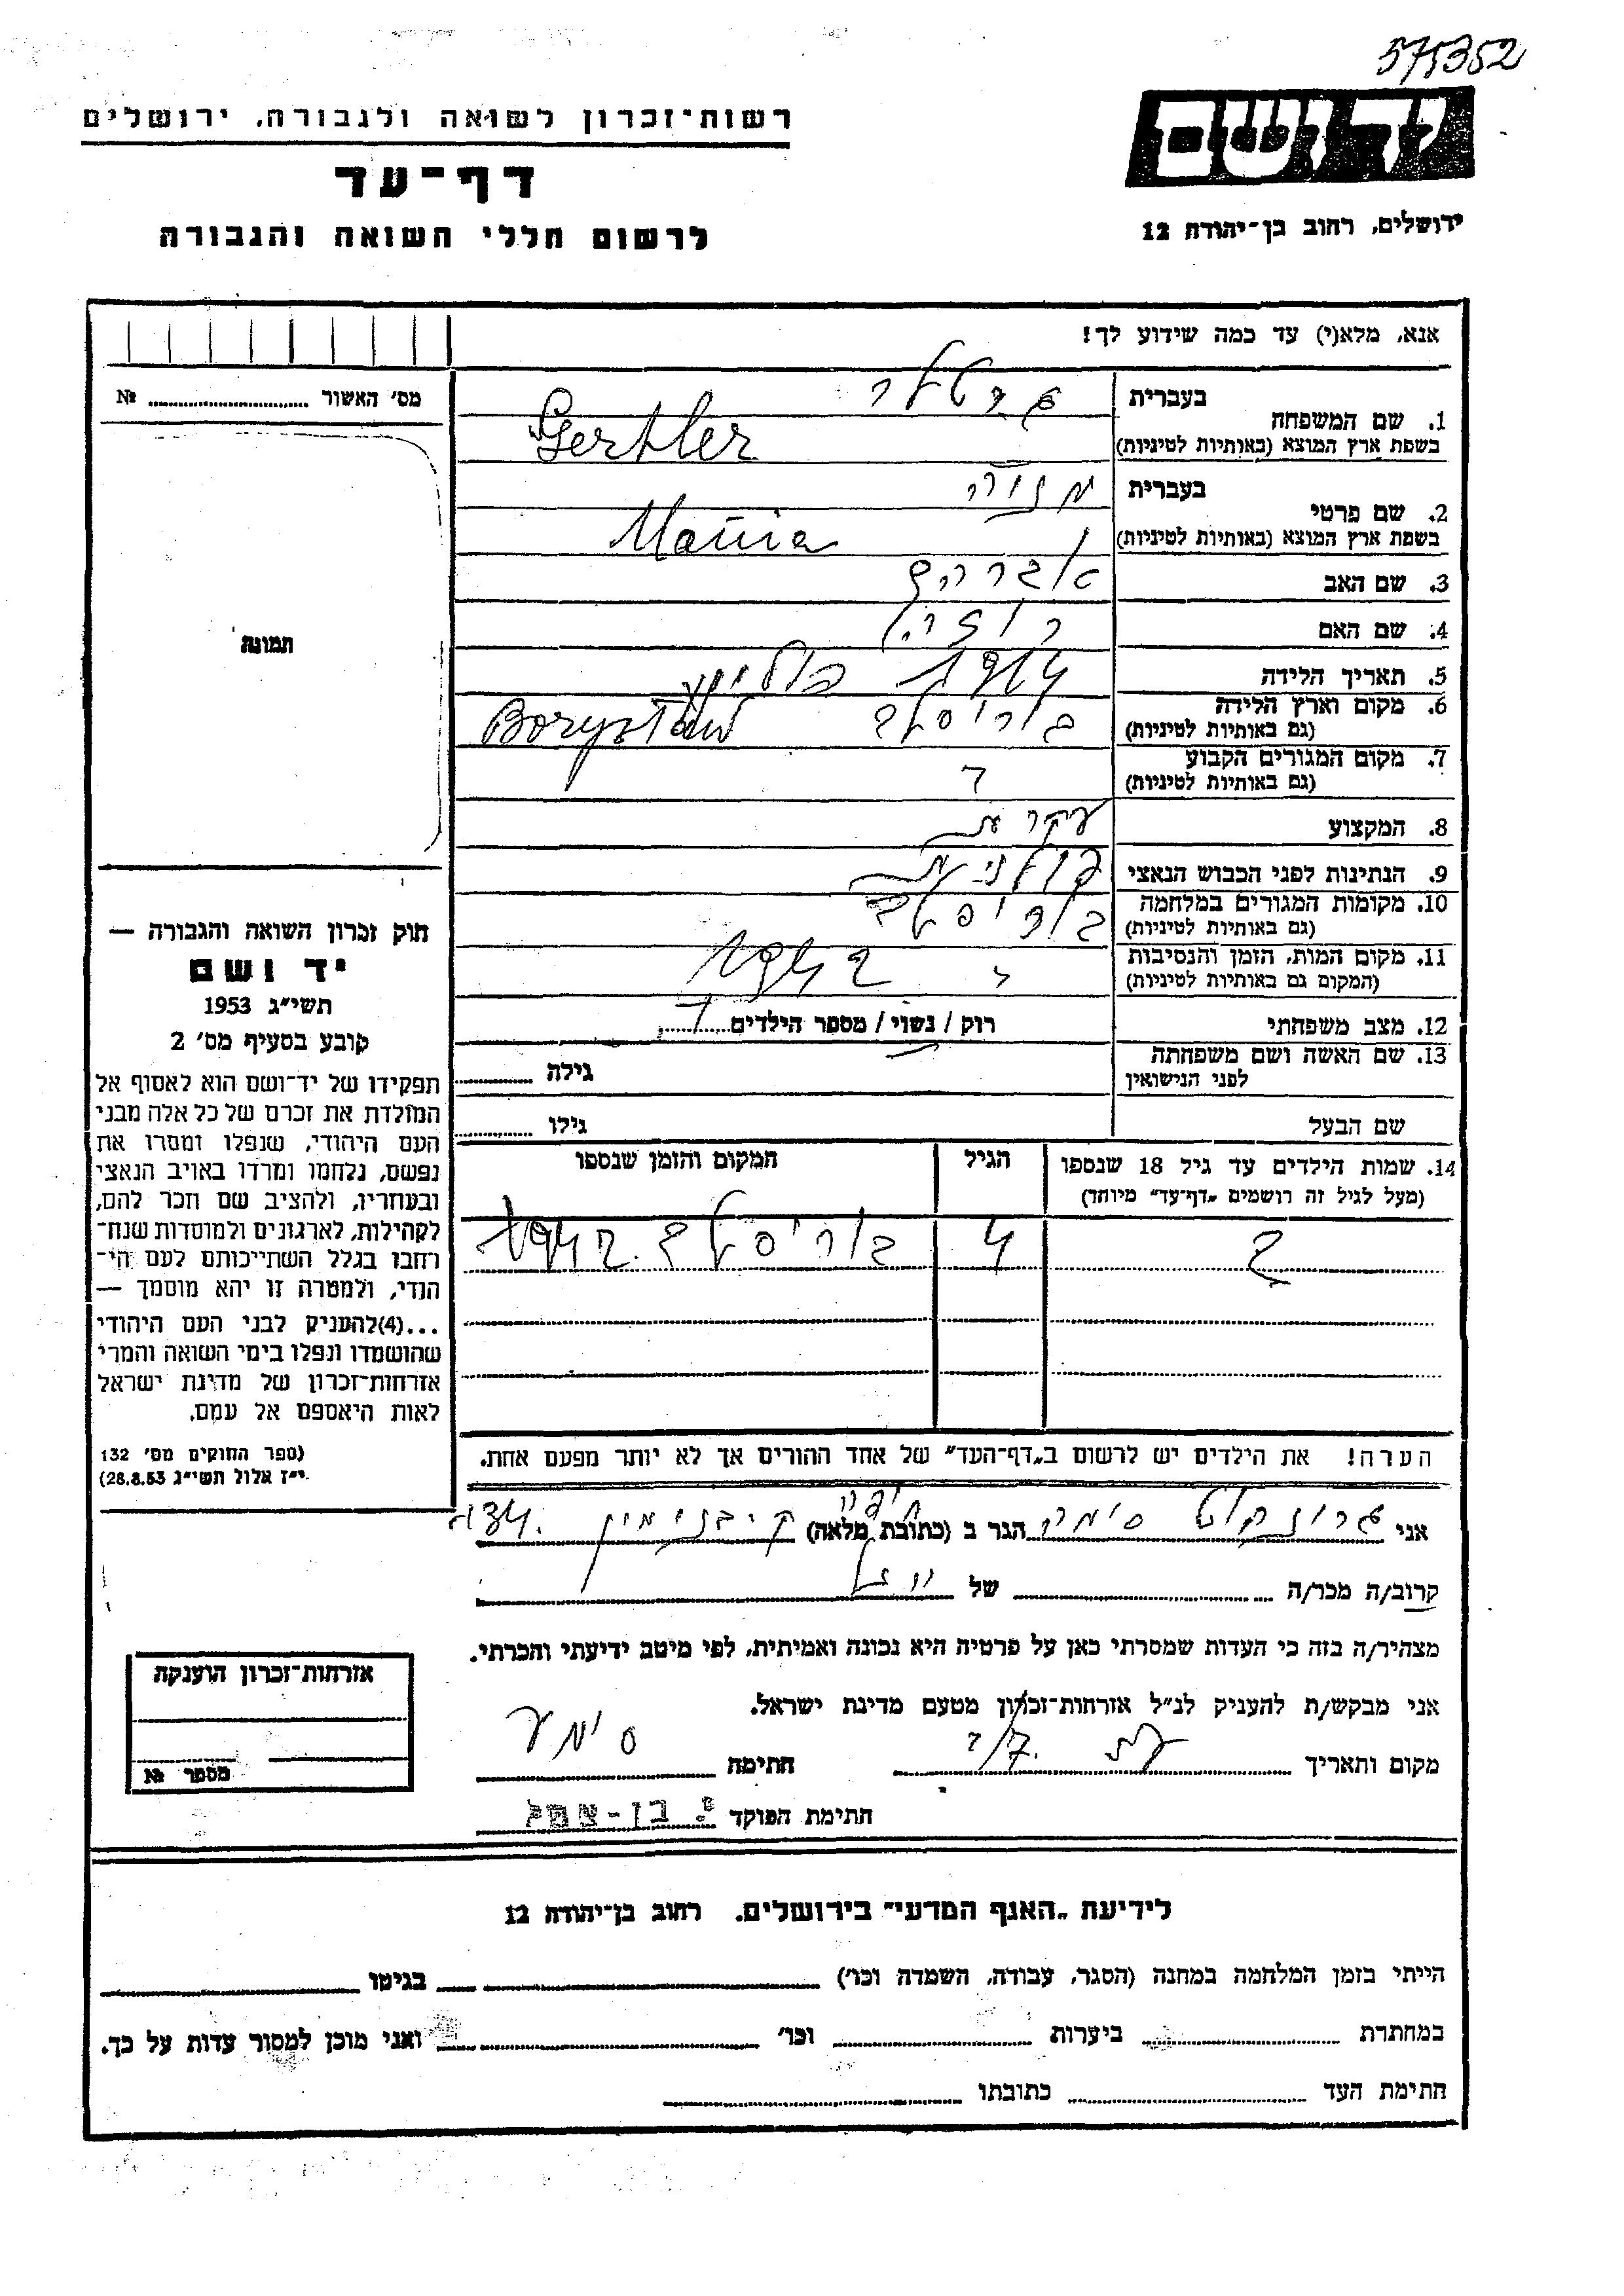 575352
יד ושם
ירושלים, רחוב בן-יהודה 12
רשות-זכרון לשואה ולגבורה, ירושלים
דף-עד
לרשום חללי השואה והגבורה
אנא, מלא(י) עד כמה שידוע לך!
מס' האשור № 
תמונה
חוק זכרון השואה והגבורה —
יד ושם
תשי"ג 1953
קובע בסעיף מס' 2
תפקידו של יד-ושם הוא לאסוף אל
המולדת את זכרם של כל אלה מבני
העם היהודי, שנפלו ומסרו את
נפשם, נלחמו ומרדו באויב הנאצי
ובעוזריו, ולהציב שם וזכר להם,
לקהילות, לארגונים ולמוסדות שנח-
רחבו בגלל השתייכותם לעם הי-
הודי, ולמטרה זו יהא מוסמך —
...(4)להעניק לבני העם היהודי
שהושמדו ונפלו בימי השואה והמרי
אזרחות-זכרון של מדינת ישראל
לאות היאספם אל עמם.
(ספר החוקים מס' 132
י"ז אלול תשי"ג 28.8.53)
1. שם המשפחה בעברית גרטלר
בשפת ארץ המוצא (באותיות לטיניות) Gertler
2. שם פרטי בעברית מניה
בשפת ארץ המוצא (באותיות לטיניות) Mania
3. שם האב אברהם
4. שם האם רוזה
5. תאריך הלידה 1914 פולין
6. מקום וארץ הלידה (גם באותיות לטיניות) בוריסלב Borysław
7. מקום המגורים הקבוע (גם באותיות לטיניות)
8. המקצוע עקרת
9. הנתינות לפני הכבוש הנאצי פולנית
10. מקומות המגורים במלחמה (גם באותיות לטיניות) בוריסלב
11. מקום המות, הזמן והנסיבות (המקום גם באותיות לטיניות) 1942
12. מצב משפחתי רוק / נשוי / מספר הילדים
13. שם האשה ושם משפחתה לפני הנישואין גילה
שם הבעל גילו
14. שמות הילדים עד גיל 18 שנספו (מעל לגיל זה רושמים "דף-עד" מיוחד) הגיל המקום והזמן שנספו
4 בוריסלב 1942
הערה! את הילדים יש לרשום ב"דף-העד" של אחד ההורים אך לא יותר מפעם אחת.
אני סימה הגר ב (כתובת מלאה) חיפה ק. בנימין
קרוב/ה מכר/ה של
מצהיר/ה בזה כי העדות שמסרתי כאן על פרטיה היא נכונה ואמיתית, לפי מיטב ידיעתי והכרתי.
אני מבקש/ת להעניק לנ"ל אזרחות-זכרון מטעם מדינת ישראל.
מקום ותאריך חתימה
חתימת הפוקד
אזרחות-זכרון הוענקה
מספר №
לידיעת "האגף המדעי" בירושלים. רחוב בן-יהודה 12
הייתי בזמן המלחמה במחנה (הסגר, עבודה, השמדה וכו') בגיטו
במחתרת ביערות וכו' ואני מוכן למסור עדות על כך.
חתימת העד כתובתו